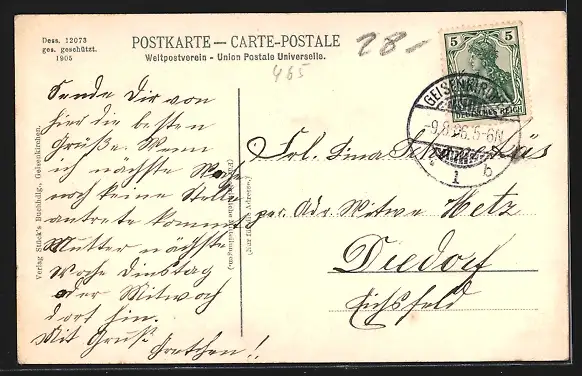 Dess. 12073
ges. geschützt.
1905
POSTKARTE — CARTE-POSTALE
Weltpostverein - Union Postale Universelle.
28-
465
5 5
DEUTSCHES REICH
GELSENKIRCHEN
9.8.06.5-6N
1 b
Sende Dir von
hier die besten
Grüße. Wenn
ich nächste Woche
noch keine Stelle
antrete kommt
Mutter nächste
Woche Dienstag
oder Mittwoch
dort hin.
Mit Gruß
Gretchen!!
Verlag Stück's Buchhdlg., Gelsenkirchen.
(Nur für die Adresse.)
Frl. Lina
per Adr. Witwe Hetz
Diedorf
Eichsfeld